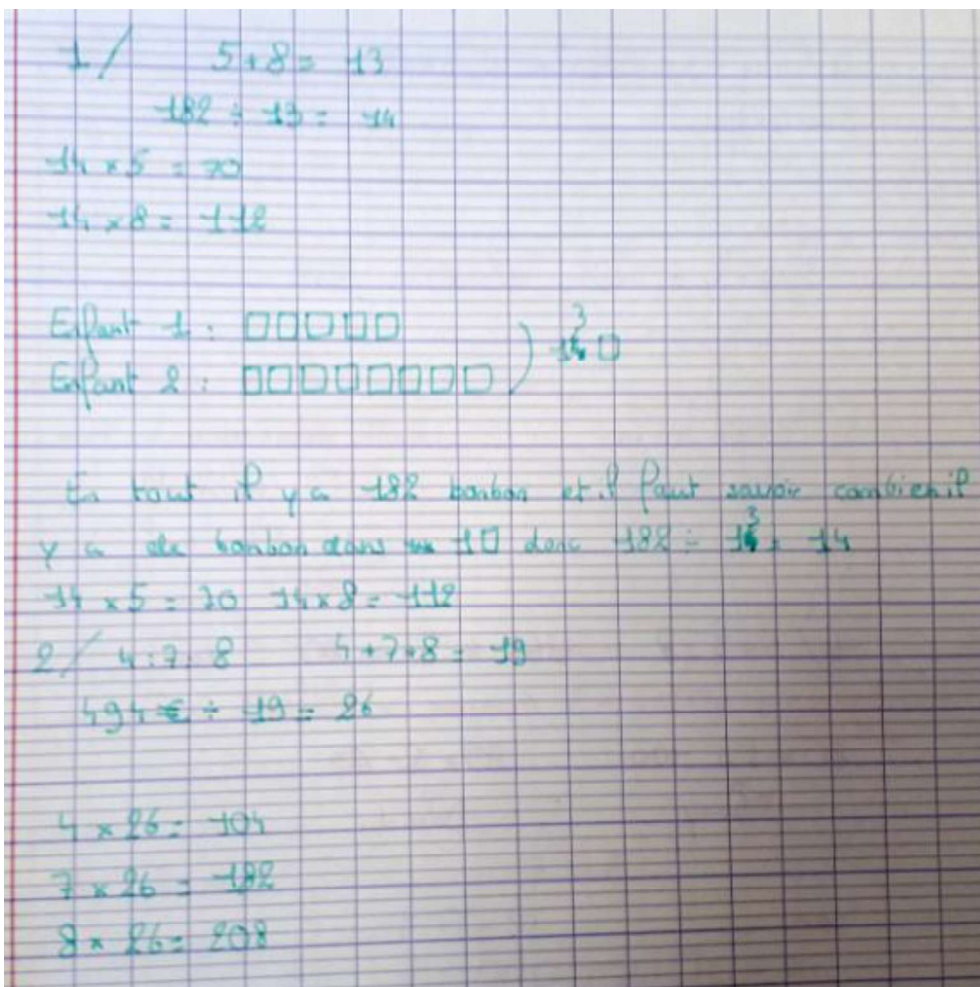 1/ 5+8 = 13
182 ÷ 13 = 14
14 × 5 = 70
14 × 8 = 112
Enfant 1 : □□□□□
Enfant 2 : □□□□□□□□ ) 13 □
En tout il y a 182 bonbon et il faut savoir combien il
y a de bonbon dans 1□ donc 182 ÷ 13 = 14
14 × 5 = 70 14 × 8 = 112
2/ 4 : 7 : 8 4+7+8 = 19
494 € ÷ 19 = 26
4 × 26 = 104
7 × 26 = 182
8 × 26 = 208